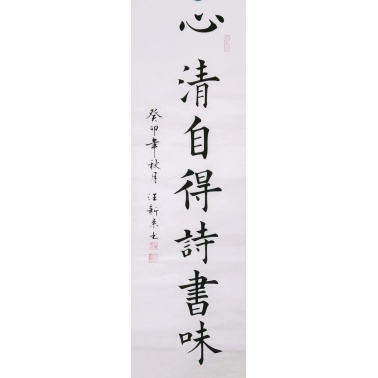 心清自得詩書味
癸卯年秋月汪新來书